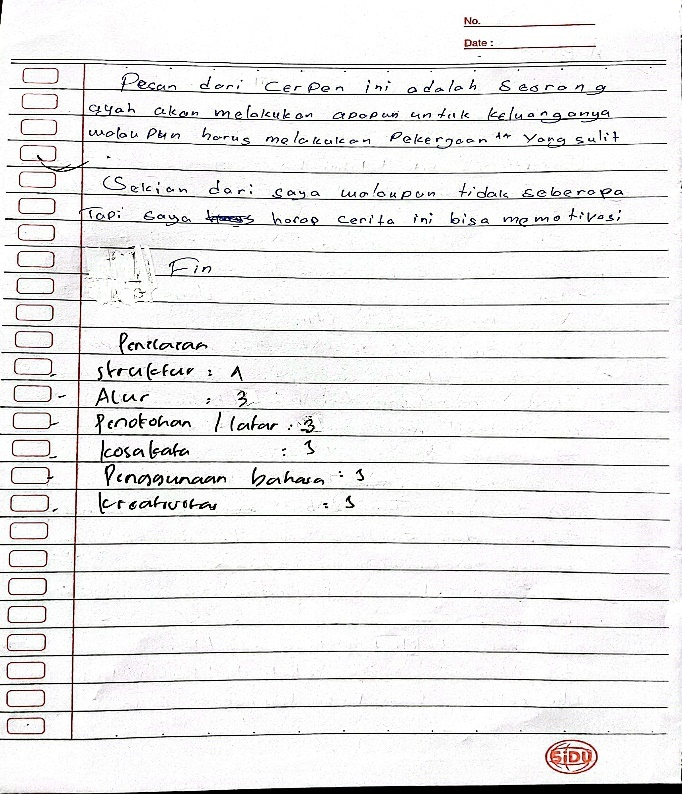 No.
Date :
Pesan dari Cerpen ini adalah Seorang
ayah akan melakukan apapun untuk keluarganya
walaupun harus melakukan Pekerjaan yang sulit
(Sekian dari saya walaupun tidak seberapa
Tapi saya harap cerita ini bisa memotivasi
Fin
Penilaian
struktur :
Alur : 3
Penokohan / latar : 3
kosakata : 3
Penggunaan bahasa : 3
kreativitas : 3
SIDU